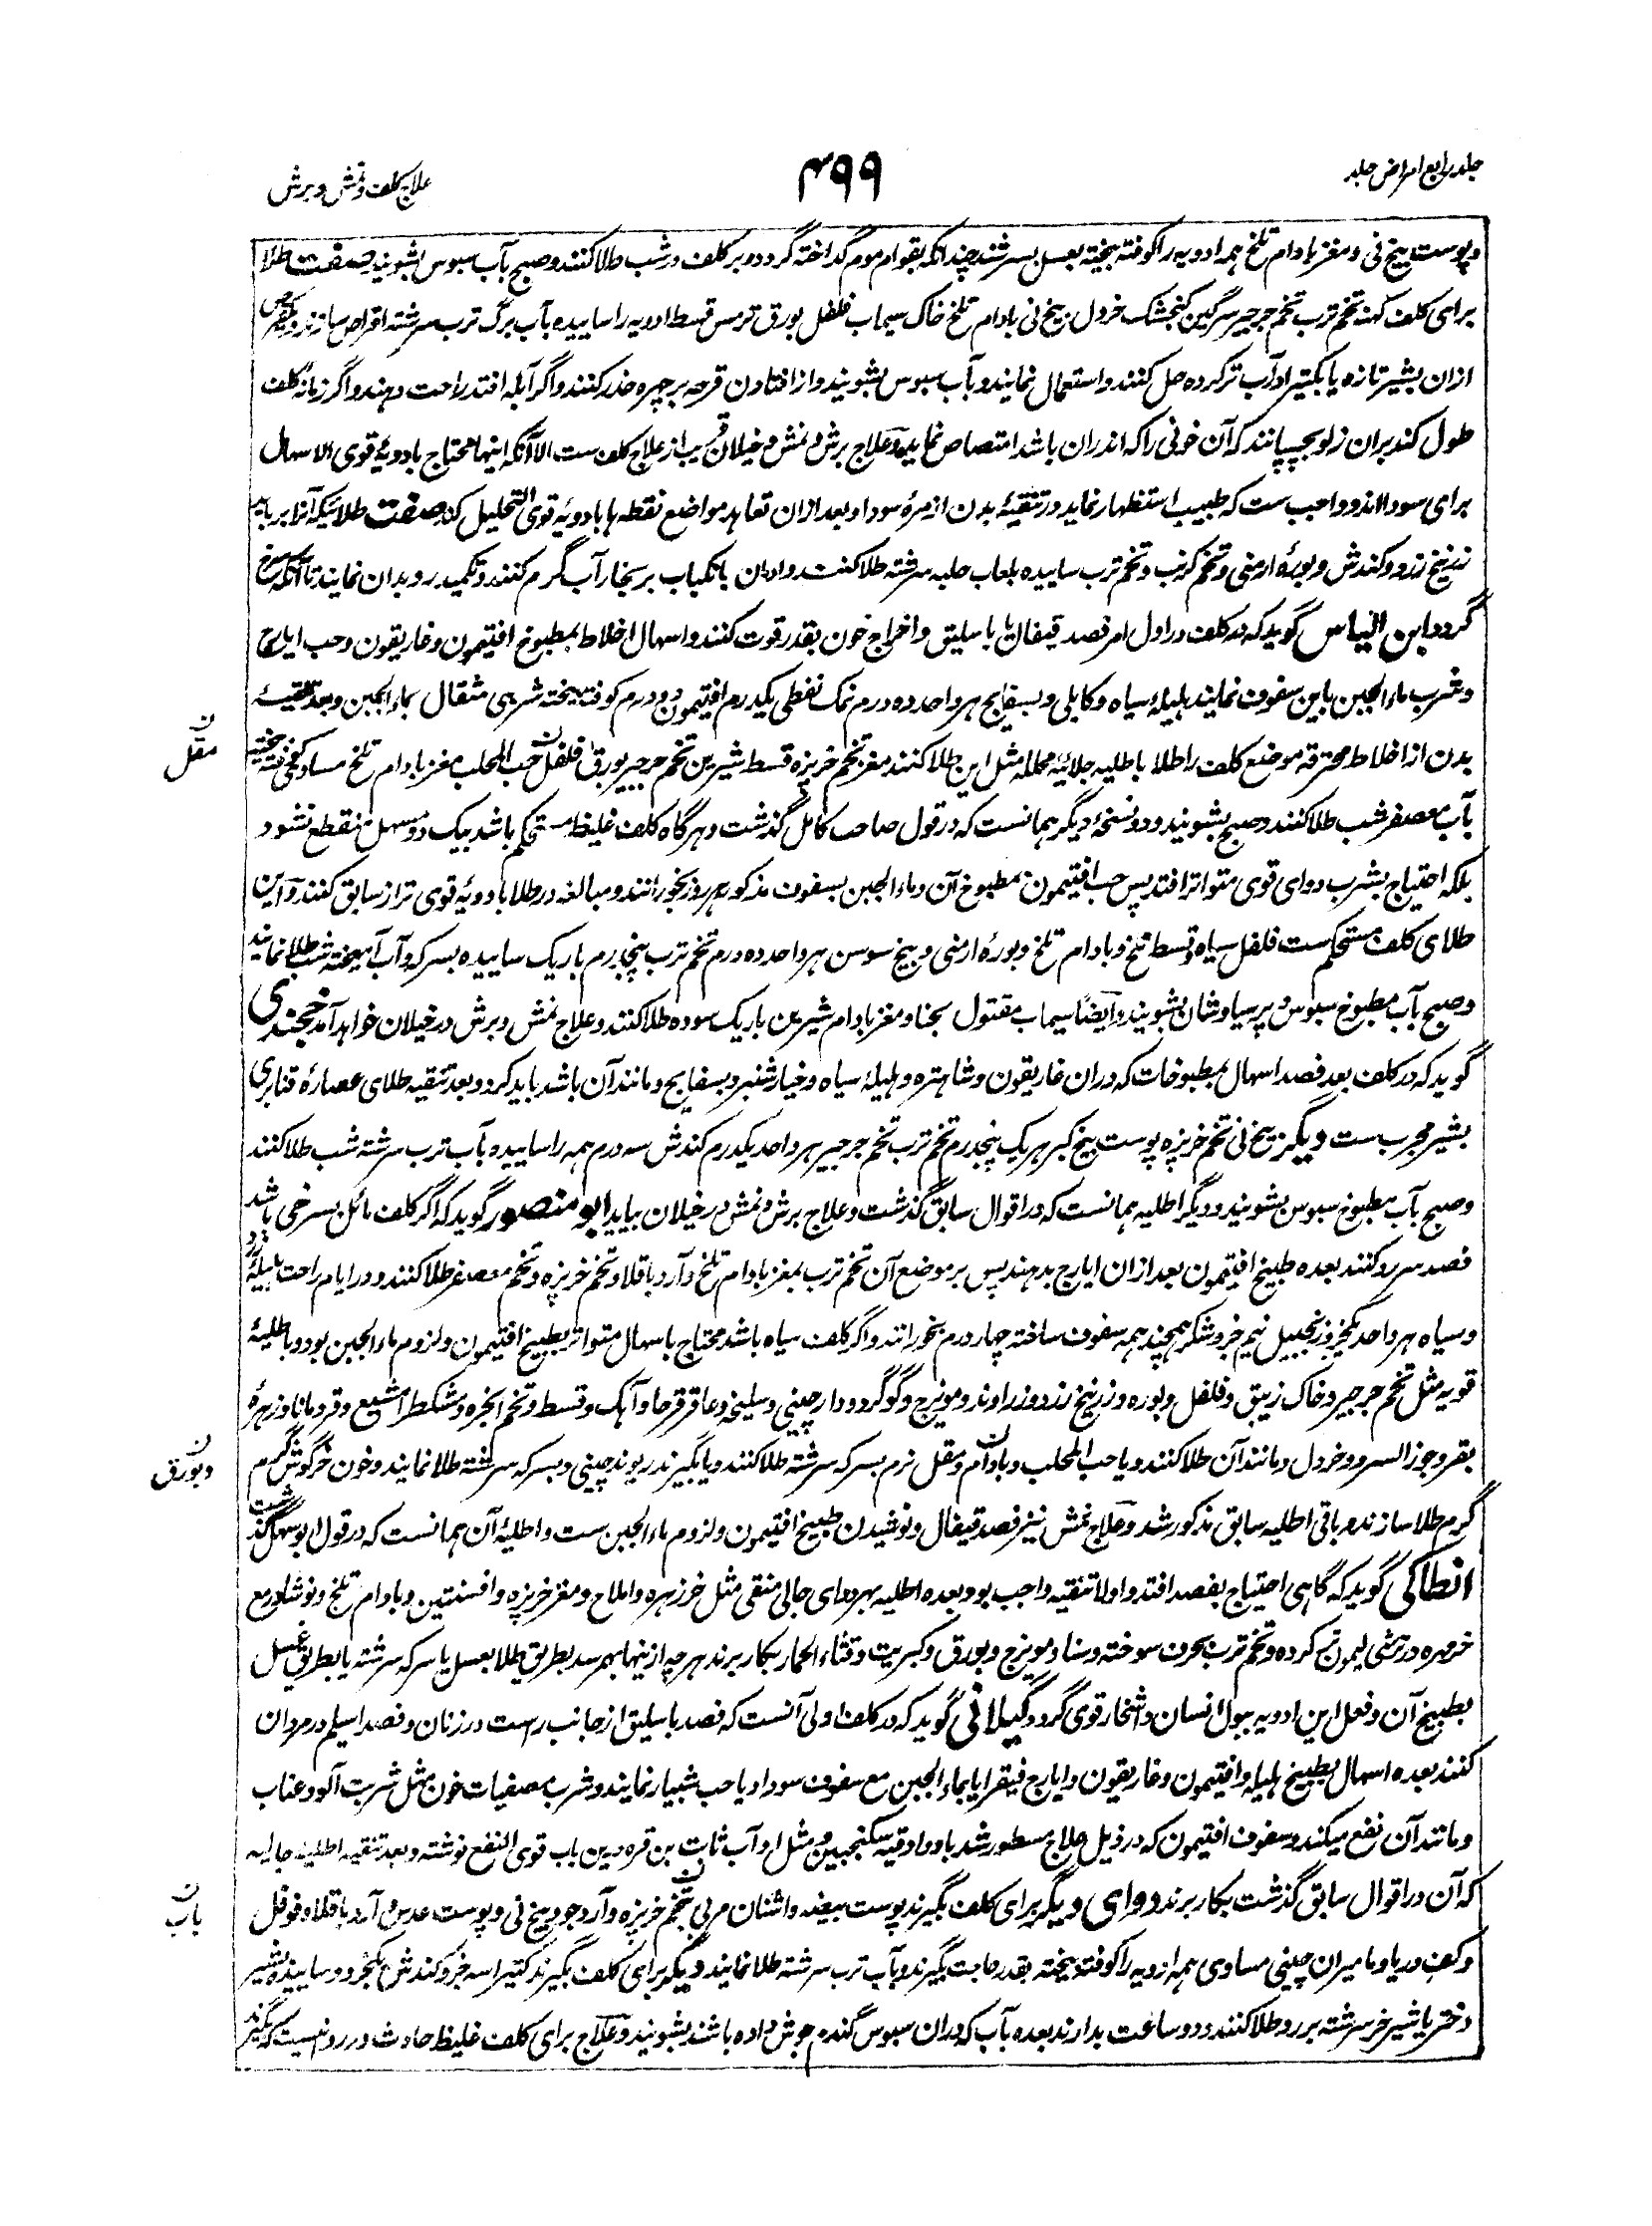 جلد رابع امراض جلد
۴۹۹
علاج کلف و نمش و برش
و پوست بیخ نی و مغز بادام تلخ همه ادویه را کوفته بیخته بعسل بسرشند چندانکه بقوام موم گداخته گردد و بر کلف در شب طلا کنند و صبح بآب سبوس بشویند صفت طلا
برای کلف کهنه تخم ترب تخم جرجیر سرگین کنجشک خردل بیخ نی بادام تلخ خاک سیماب فلفل بورق ترمس قسط ادویه را ساییده بآب برگ ترب سرشته اقراص سازند و یکقرص
ازان بشیر تازه یا بکتیرا و آب تر کرده حل کنند و استعمال نمایند و بآب سبوس بشویند و از افتادن قرحه بر چهره حذر کنند و اگر آبله افتد راحت دهند و اگر زمانه کلف
طول کند بران زلو بچسپانند که آن خونی را که اندران باشد امتصاص نماید و علاج برش و نمش و خیلان قریب از علاج کلف ست الا آنکه اینها محتاج بادویهٔ قوی الاسهال
برای سودا اند و واجب ست که طبیب استظهار نماید در تنقیهٔ بدن از مرهٔ سودا و بعد ازان تعاهد مواضع نقطه ها بادویهٔ قوی التحلیل کند صفت طلائیکه آنرا بر باید
زرنیخ زرد و کندش و بورهٔ ارمنی و تخم کرنب و تخم ترب ساییده بلعاب حلبه سرشته طلا کنند و ادمان بانکباب بر بخار آب گرم کنند و تکمید رو بدان نمایند تا آنکه سرخ
گردد ابن الیاس گوید که در کلف در اول امر فصد قیفال یا باسلیق و اخراج خون بقدر قوت کنند و اسهال اخلاط بمطبوخ افتیمون و غاریقون و حب ایارج
و شرب ماء الجبن باین سفوف نمایند هلیلهٔ سیاه و کابلی و بسفایج هر واحد ده درم نمک نفطی یکدرم افتیمون دو درم کوفته بیخته شربتی مثقال بماء الجبن و بعد تنقیهٔ
بدن از اخلاط محترقه موضع کلف را طلا باطلیه جلائیهٔ محلله مثل این طلا کنند مغز تخم خربزه قسط شیرین تخم جرجیر بورق فلفل حب المحلب مغز بادام تلخ مساوی کوفته بیخته
بآب معصفر شب طلا کنند و صبح بشویند و دو نسخهٔ دیگر همانست که در قول صاحب کامل گذشت و هر گاه کلف غلیظ مستحکم باشد بیک دو مسهل منقطع نشود
بلکه احتیاج بشرب دوای قوی متواتر افتد پس حب افتیمون بمطبوخ آن و ماء الجبن بسفوف مذکور هر روز بخورانند و مبالغه در طلا بادویهٔ قوی تر از سابق کنند و این
طلای کلف مستحکم ست فلفل سیاه و قسط تلخ و بادام تلخ و بورهٔ ارمنی و بیخ سوسن هر واحد ده درم تخم ترب پنجدرم باریک ساییده بسرکه و آب آمیخته شب طلا نمایند
و صبح بآب مطبوخ سبوس و پرسیاوشان بشویند و ایضاً سیماب مقتول بحنا و مغز بادام شیرین باریک سوده طلا کنند و علاج نمش و برش در خیلان خواهد آمد خجندی
گوید که در کلف بعد فصد اسهال بمطبوخات که دران غاریقون و شاهتره و هلیلهٔ سیاه و خیار شنبر و بسفایج و مانند آن باشد باید کرد و بعد تنقیه طلای عصارهٔ قنابری
بشیر مجرب ست دیگر بیخ نی تخم خربزه پوست بیخ کبر هر یک پنجدرم تخم ترب تخم جرجیر هر واحد یکدرم کندش سه درم همه را ساییده بآب ترب سرشته شب طلا کنند
و صبح بآب مطبوخ سبوس بشویند و دیگر اطلیه همانست که در اقوال سابق گذشت و علاج برش و نمش در خیلان بیاید ابو منصور گوید که اگر کلف مائل بسرخی باشد
فصد سر رو کنند بعده طبیخ افتیمون بعد ازان ایارج بدهند پس بر موضع آن تخم ترب بمغز بادام تلخ و آرد باقلا و تخم خربزه و تخم معصفر طلا کنند و در ایام راحت هلیلهٔ زرد
و سیاه هر واحد یکجزو زنجبیل نیم جزو شکر همچند همه سفوف ساخته چهار درم بخورانند و اگر کلف سیاه باشد محتاج باسهال متواتر بطبیخ افتیمون و لزوم ماء الجبن بود و باطلیهٔ
قویه مثل تخم جرجیر و خاک زیبق و فلفل و بوره و زرنیخ زرد و زراوند و مویزج و گوگرد و دارچینی و سلیخه و عاقرقرحا و آهک و قسط و تخم انجره و مشکطرامشیع و قردمانا و زهرهٔ
بقر و جوز السرو و خردل و مانند آن طلا کنند و یا حب المحلب و بادام و مقل نرم بسرکه سرشته طلا کنند و یا بگیرند ریوند چینی و بسرکه سرشته طلا نمایند و خون خرگوش گرم
گرم طلا سازند و باقی اطلیه سابق مذکور شد و علاج نمش نیز فصد قیفال و نوشیدن طبیخ افتیمون و لزوم ماء الجبن ست و اطلیهٔ آن همانست که در قول ابو سهل گذشت
انطاکی گوید که گاهی احتیاج بفصد افتد و اولا تنقیه واجب بود و بعده اطلیه بهر دوای جالی منقی مثل خرزهره و املاح و مغز خربزه و افسنتین و بادام تلخ و نوشادر مع
خرمهره در ترشی لیمون تر کرده و تخم ترب بحرف سوخته و سنا و مویزج و بورق و کبریت و قثاء الحمار بکار برند هر چه ازینها بهم رسد بطریق طلا بعسل یا سرکه سرشته یا بطریق غسل
بطبیخ آن و فعل این ادویه ببول انسان و اشخار قوی گردد گیلانی گوید که در کلف اولی آنست که فصد باسلیق از جانب راست در زنان و فصد اسیلم در مردان
کنند بعده اسهال بطبیخ هلیله و افتیمون و غاریقون و ایارج فیقرا یا بماء الجبن مع سفوف سودا و یا حب شبیار نمایند و شرب مصفیات خون مثل شربت آلو و عناب
و مانند آن نفع میکند و سفوف افتیمون که در ذیل علاج مسطور شد با دو اوقیه سکنجبین و مثل او آب ثابت بن قره درین باب قوی النفع نوشته و بعد تنقیه اطلیه جالیه
که آن در اقوال سابق گذشت بکار برند دوای دیگر برای کلف بگیرند پوست بیضه و اشنان مربی بتخم خربزه و آرد جو و بیخ نی و پوست عدس و آرد باقلا و فوفل
و کف دریا و مامیران چینی مساوی همه ادویه را کوفته بیخته بقدر حاجت بگیرند و بآب ترب سرشته طلا نمایند دیگر برای کلف بگیرند کتیرا سه جزو کندش یکجزو و ساییده بشیر
دختر یا شیر خر سرشته بر رو طلا کنند و دو ساعت بدارند بعده بآب که دران سبوس گندم جوش داده باشند بشویند و علاج برای کلف غلیظ حادث در رو نیست که بگیرند
ن
مقل
ن
و بورق
ن
باب